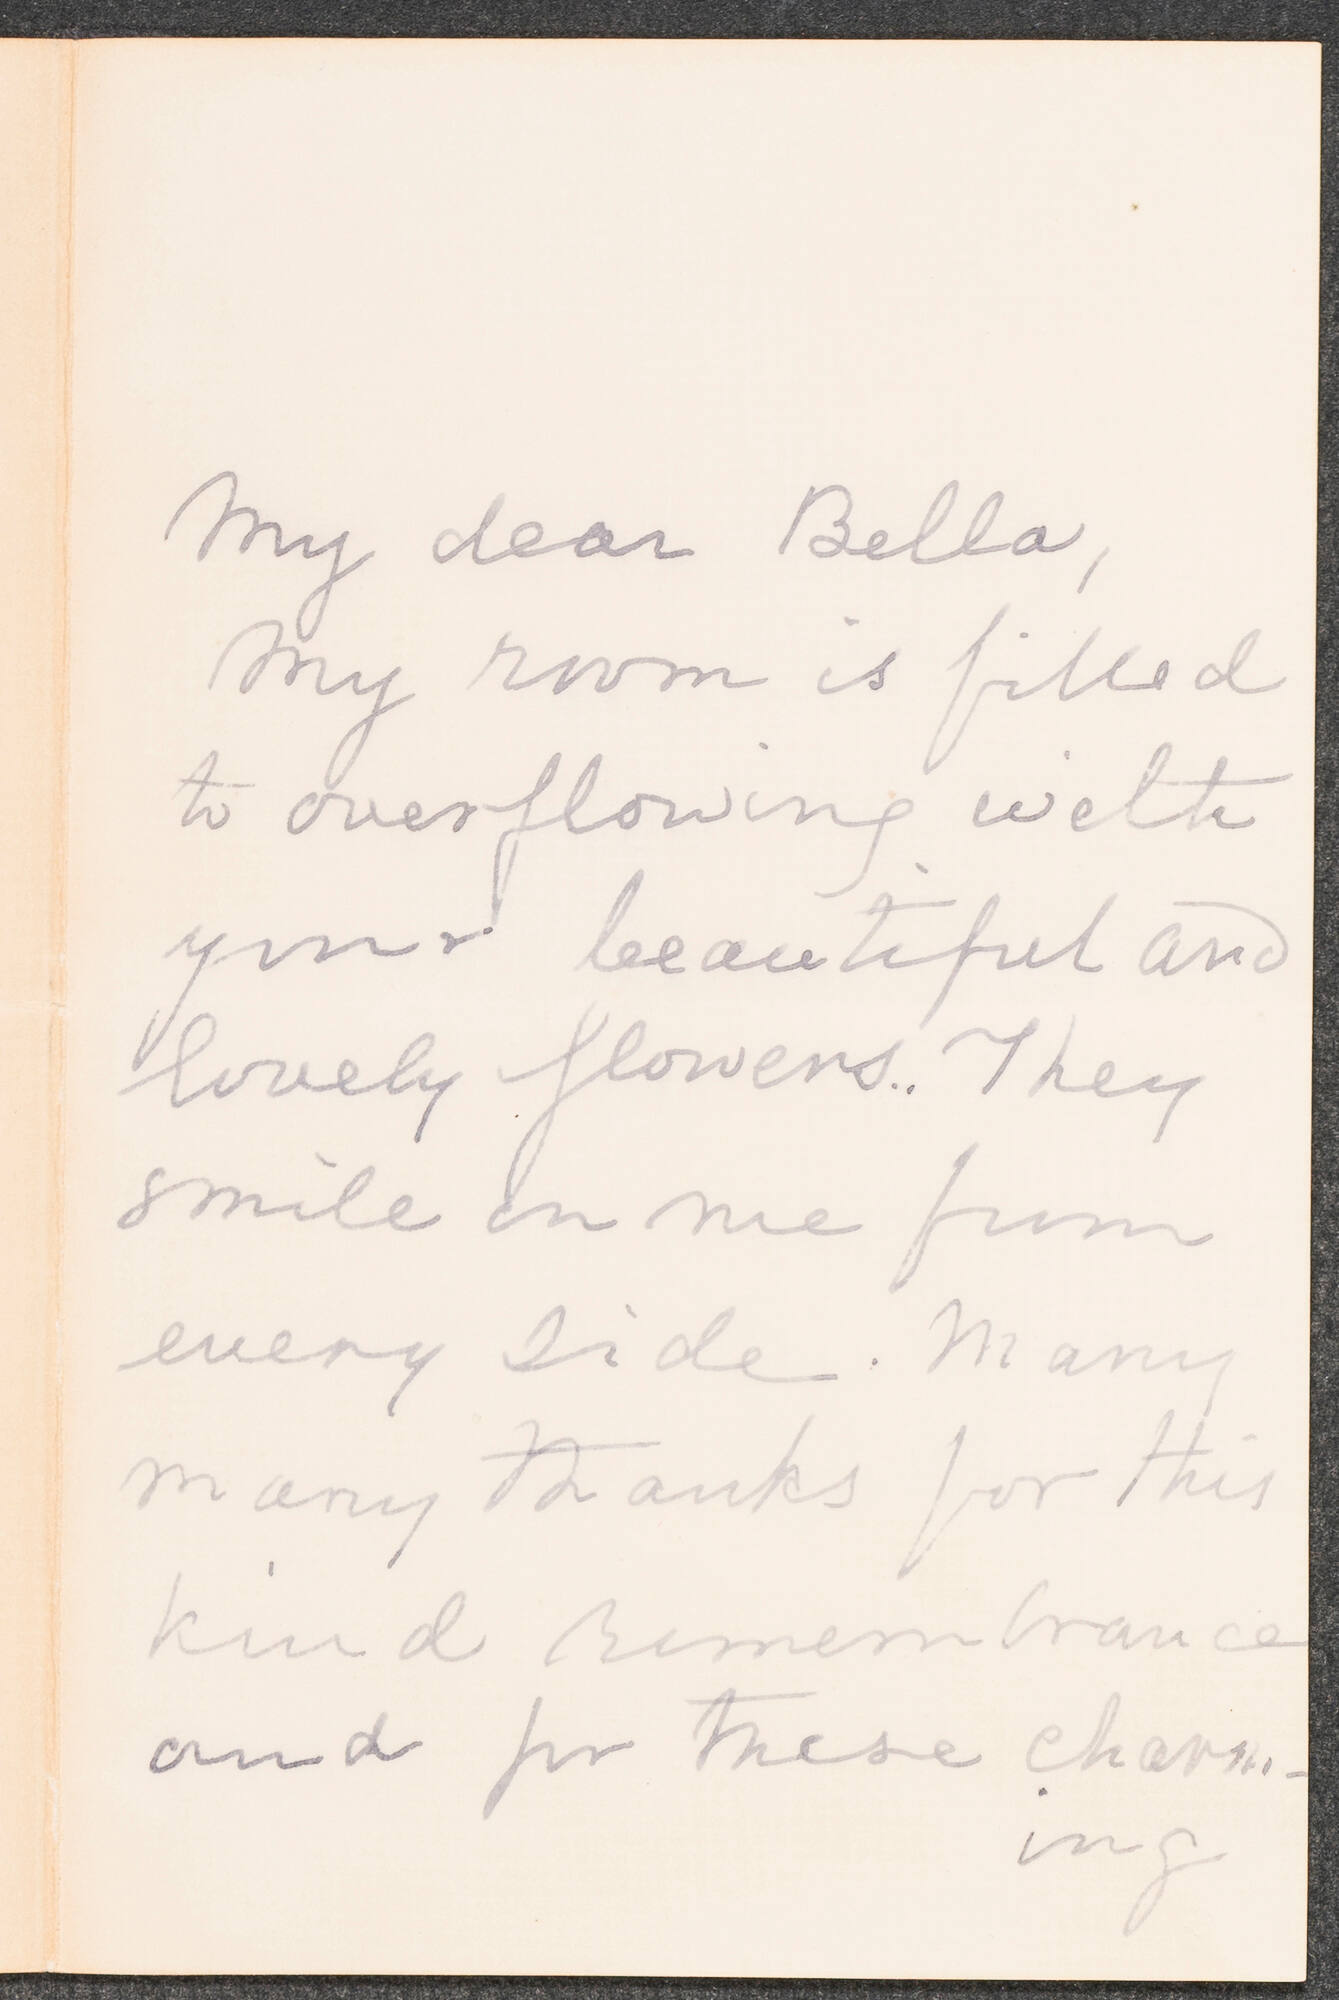 My dear Bella,
My room is filled
to overflowing with
your beautiful and
lovely flowers. They
smile on me from
every side. Many
many thanks for this
kind remembrance
and for these charm-
ing